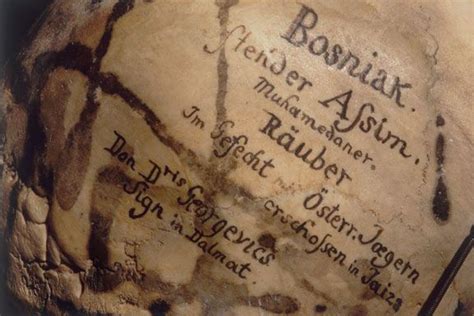 Bosniak.
ſtender Aſsim.
Muhamedaner.
Räuber
Im Gefecht Österr. Jaegern
erschoſsen in Jaiza
Don. Dris Georgevics
Sign in Dalmat.